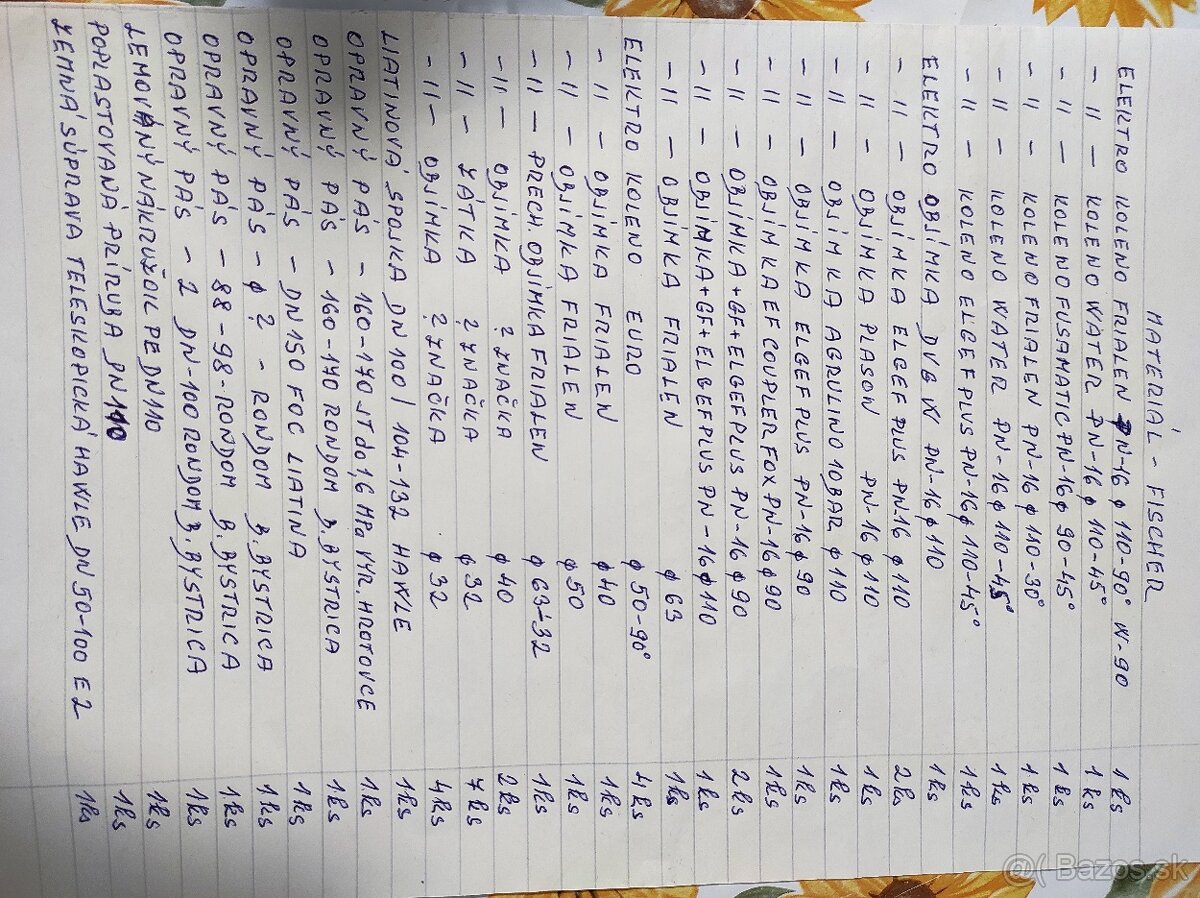 MATERIÁL - FISCHER
ELEKTRO KOLENO FRIALEN PN-16 φ 110-90° W-90 1ks
- 11 - KOLENO WATER PN-16 φ 110-45° 1ks
- 11 - KOLENO FUSAMATIC PN-16 φ 90-45° 1ks
- 11 - KOLENO FRIALEN PN-16 φ 110-30° 1ks
- 11 - KOLENO WATER PN-16 φ 110-45° 1ks
- 11 - KOLENO ELGEF PLUS PN-16 φ 110-45° 1ks
ELEKTRO OBJÍMKA DVG W PN-16 φ 110 1ks
- 11 - OBJÍMKA ELGEF PLUS PN-16 φ 110 2ks
- 11 - OBJÍMKA PLASON PN-16 φ 110 1ks
- 11 - OBJÍMKA AGRULINO 10BAR φ 110 1ks
- 11 - OBJÍMKA ELGEF PLUS PN-16 φ 90 1ks
- 11 - OBJÍMKA EF COUPLER FOX PN-16 φ 90 1ks
- 11 - OBJÍMKA+GF+ELGEFPLUS PN-16 φ 90 2ks
- 11 - OBJÍMKA+GF+ELGEFPLUS PN-16 φ 110 1ks
- 11 - OBJÍMKA FRIALEN φ 63 1ks
ELEKTRO KOLENO EURO φ 50-90° 4ks
- 11 - OBJÍMKA FRIALEN φ 40 1ks
- 11 - OBJÍMKA FRIALEN φ 50 1ks
- 11 - PRECH. OBJÍMKA FRIALEN φ 63-32 1ks
- 11 - OBJÍMKA ? ZNAČKA φ 40 2ks
- 11 - ZÁTKA ? ZNAČKA φ 32 7ks
- 11 - OBJÍMKA ? ZNAČKA φ 32 4ks
LIATINOVÁ SPOJKA DN 100/ 104-132 HAWLE 1ks
OPRAVNÝ PÁS - 160-170 JT do 1,6 MPa VÝR. HROTOVCE 1ks
OPRAVNÝ PÁS - 160-170 RONDOM B. BYSTRICA 1ks
OPRAVNÝ PÁS - DN 150 FOC LIATINA 1ks
OPRAVNÝ PÁS - φ ? - RONDOM B. BYSTRICA 1ks
OPRAVNÝ PÁS - 88-98-RONDOM B. BYSTRICA 1ks
OPRAVNÝ PÁS - 2 DN-100 RONDOM B. BYSTRICA 1ks
LEMOVANÝ NÁKRUŽOK PE DN 110 1ks
POPLASTOVANÁ PRÍRUBA DN 110 1ks
ZEMNÁ SÚPRAVA TELESKOPICKÁ HAWLE DN 50-100 E2 1ks
@( Bazos.sk